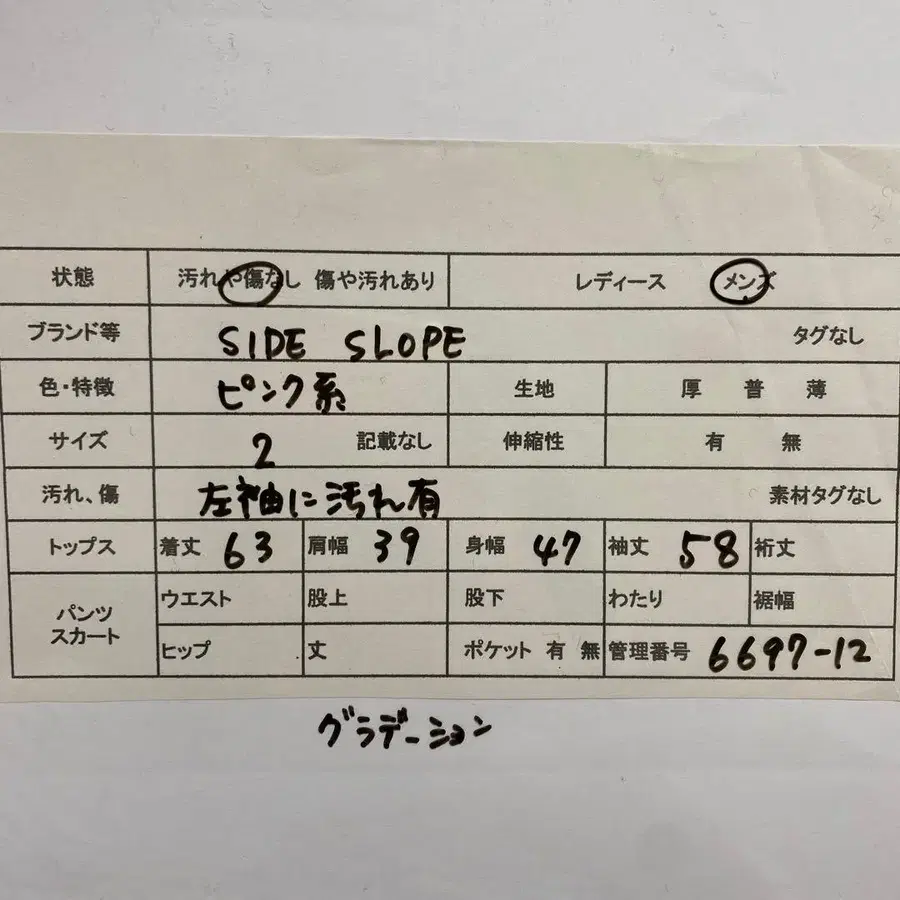 状態 汚れや傷なし 傷や汚れあり レディース メンズ
ブランド等 SIDE SLOPE タグなし
色・特徴 ピンク系 生地 厚 普 薄
サイズ 2 記載なし 伸縮性 有 無
汚れ、傷 左袖に汚れ有 素材タグなし
トップス 着丈 63 肩幅 39 身幅 47 袖丈 58 裄丈
パンツ スカート ウエスト 股上 股下 わたり 裾幅
ヒップ 丈 ポケット 有 無 管理番号 6697-12
グラデーション